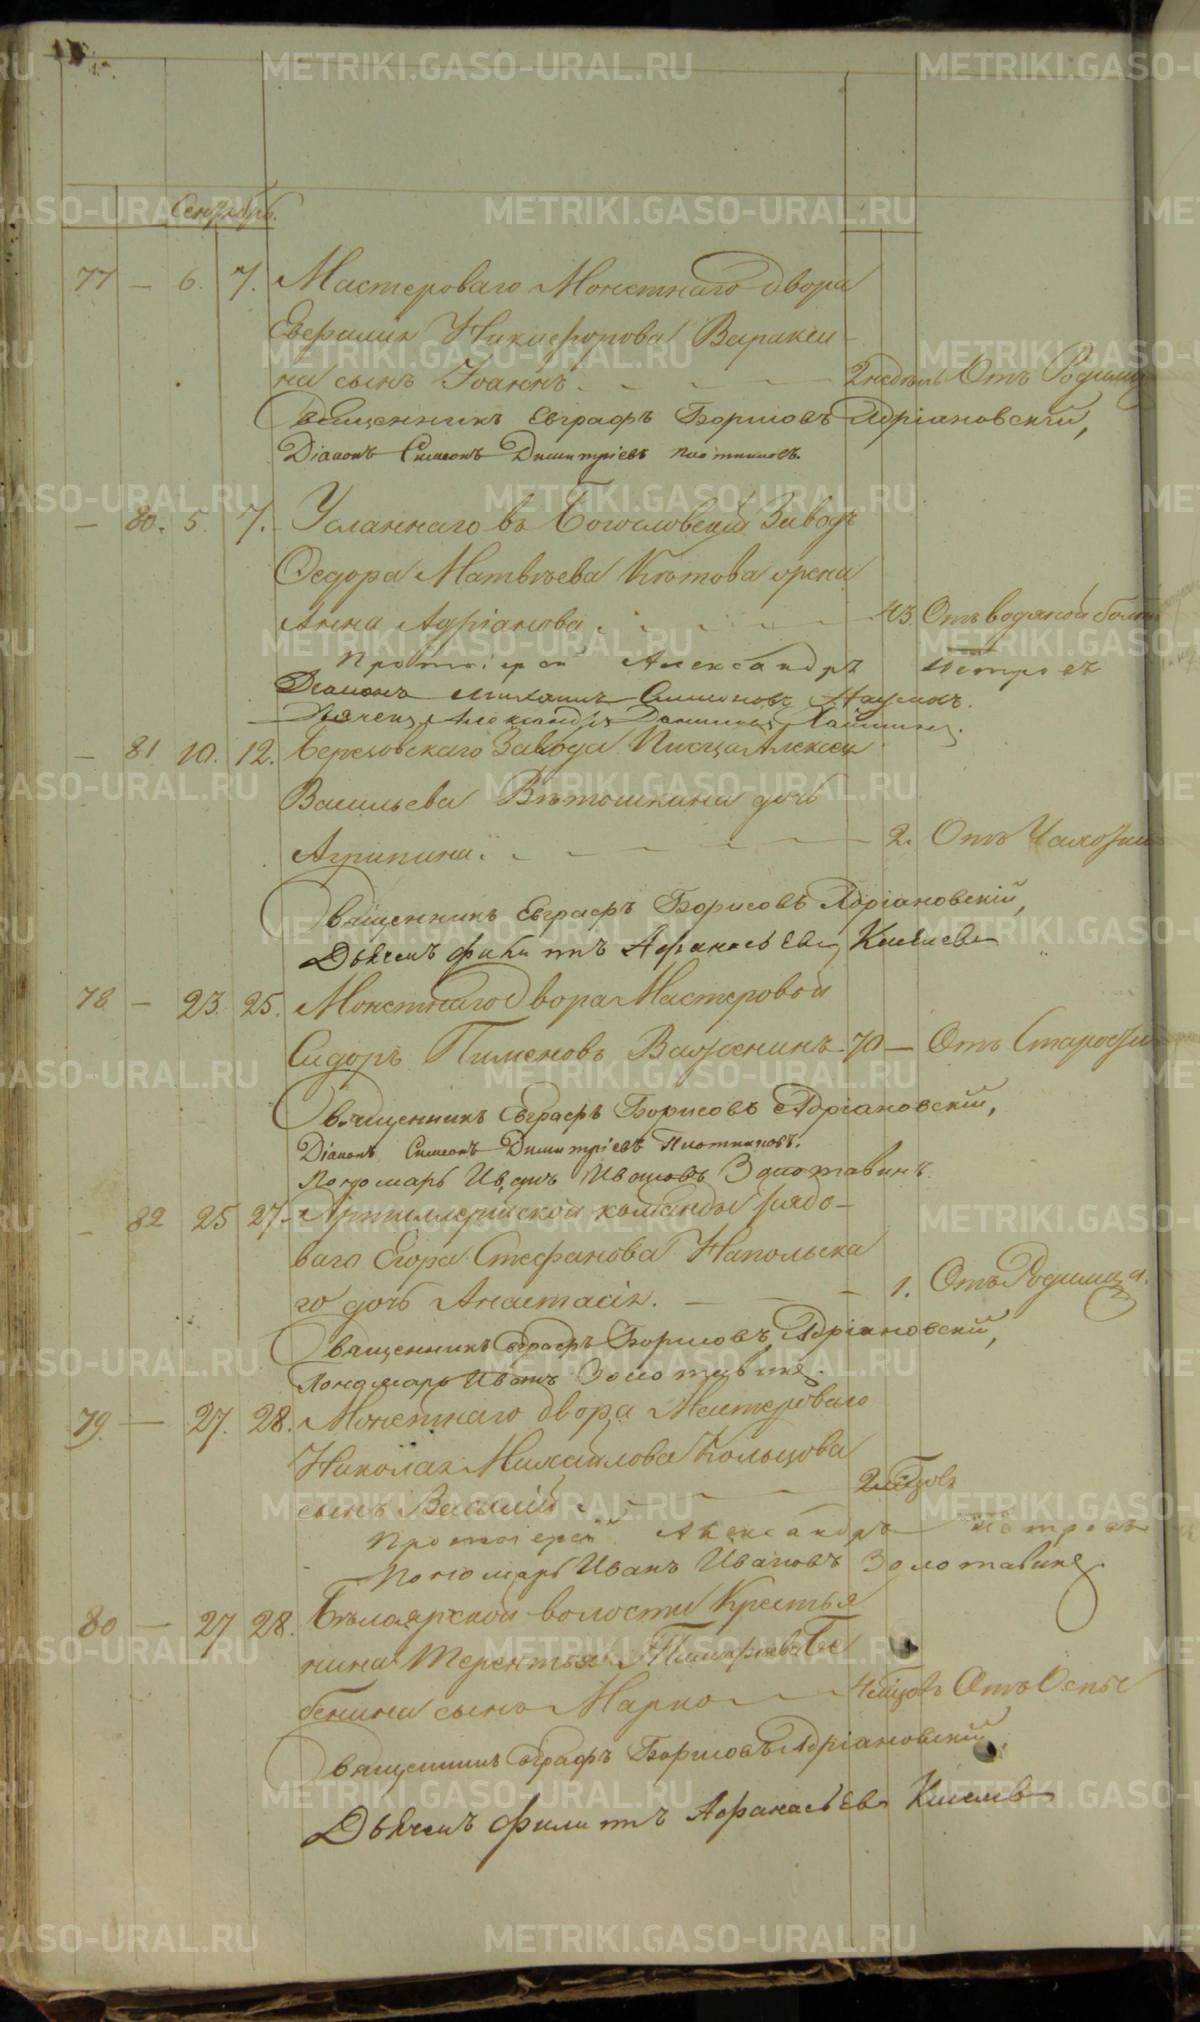 Сентябрь.
77 — 6. 7. Мастероваго Монетнаго двора
Никифорова Вараксы-
на сынъ Іоаннъ. 2 недѣль Отъ Родимца
Священникъ Евграфъ Борисовъ Адріановскій,
Діаконъ Симеонъ Димитріевъ Плотниковъ.
— 80. 5. 7. Усланнаго въ Богословскій Заводъ
Ѳедора Матвѣева Китова жена
Анна Адріанова 43. Отъ водяной болѣз
Протоіерей Александръ Петровъ
Діаконъ Михаилъ Симеоновъ Наумовъ.
Дьячекъ Александръ
— 81 10. 12. Березовскаго Завода Писца Алексея
Васильева Вѣтошкина дочь
Агрипина. 2. Отъ Чахотки
Священникъ Евграфъ Борисовъ Адріановскій,
Дьячекъ Филиппъ Афанасьевъ Киселевъ
78 — 23. 25. Монетнаго Двора Мастеровой
Сидоръ Пименовъ 70 — Отъ Старости
Священникъ Евграфъ Борисовъ Адріановскій,
Діаконъ Симеонъ Димитріевъ Плотниковъ.
Пономарь Иванъ Ивановъ Золотавинъ.
— 82 25 27. Артиллерійской команды рядо-
ваго Егора Стефанова Напольска
го дочь Анастасія. 1. Отъ Родимца.
Священникъ Евграфъ Борисовъ Адріановскій,
Пономарь Иванъ Золотавинъ.
79. — 27. 28. Монетнаго двора Мастероваго
Николая Михайлова Кольцова
сынъ Василій 2 мѣсцовъ
Протоіерей Александръ Петровъ
Пономарь Иванъ Ивановъ Золотавинъ.
80 — 27 28. Бѣлоярской волости Крестья
нина Терентья Бе
бенина сынъ Марко 4 мѣсцовъ Отъ Оспы
Священникъ Евграфъ Борисовъ Адріановскій,
Дьячекъ Филиппъ Афанасьевъ Киселевъ